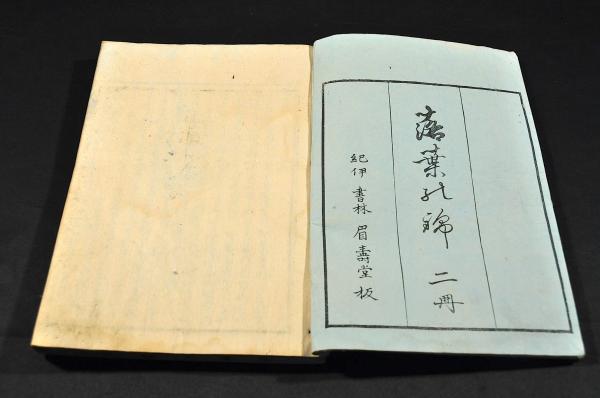 落葉の錦 二冊
紀伊 書林 眉壽堂 板